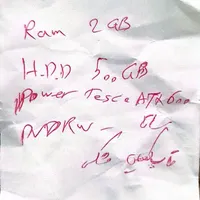 Ram 2 GB
H.D.D 500 GB
Power Tesco ATX 600
DVDRW -